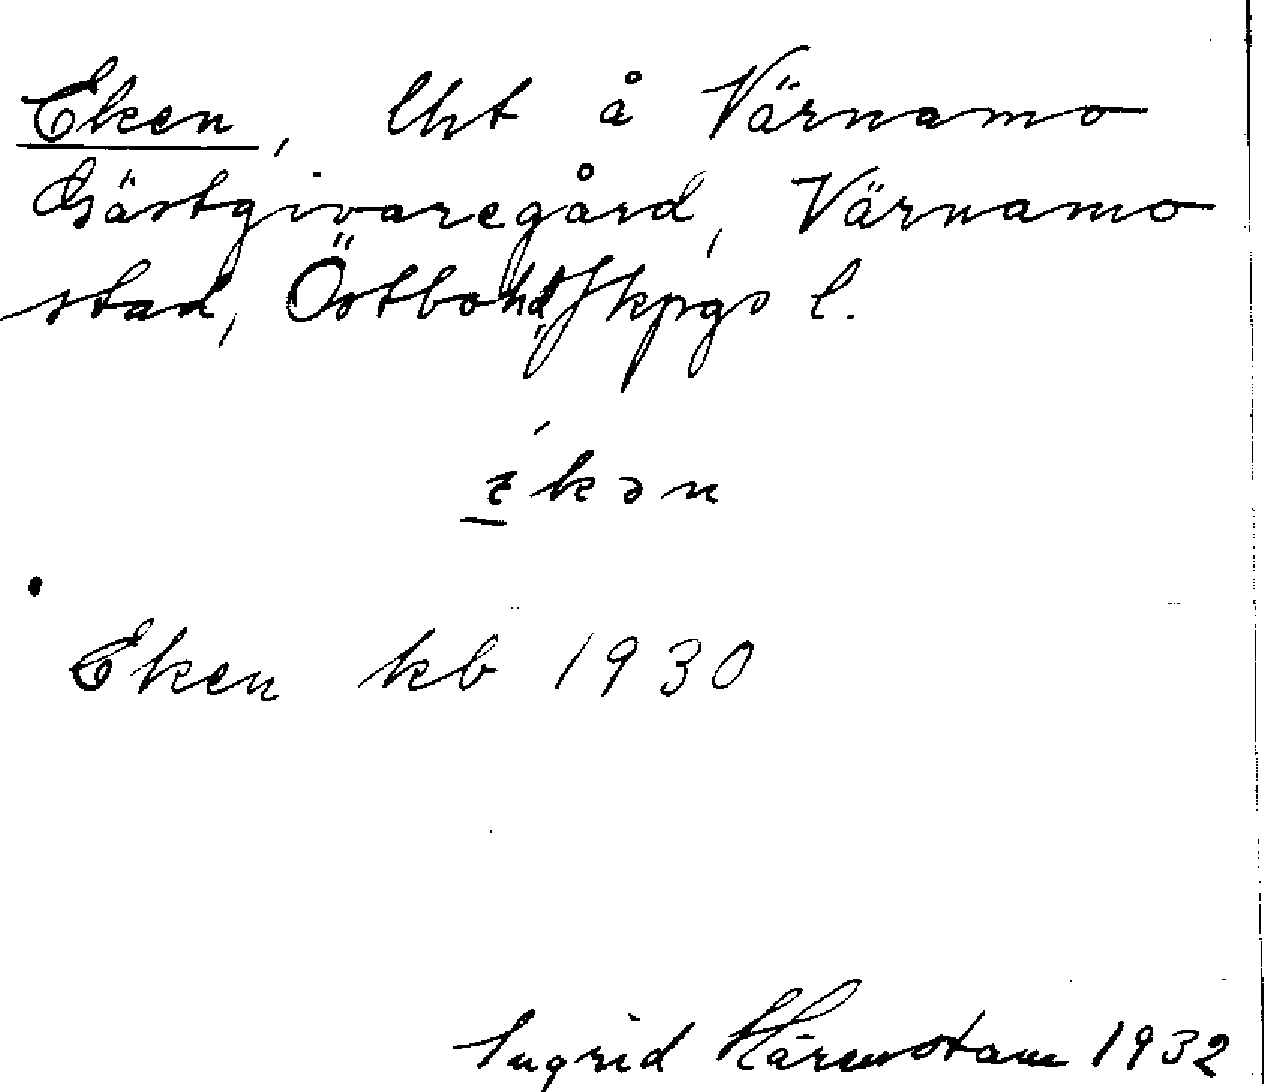 Eken, lht å Värnamo
Gästgivaregård, Värnamo
stad, Östbo hd, Jkpgs l.
Eken kb 1930
Ingrid Härenstam 1932